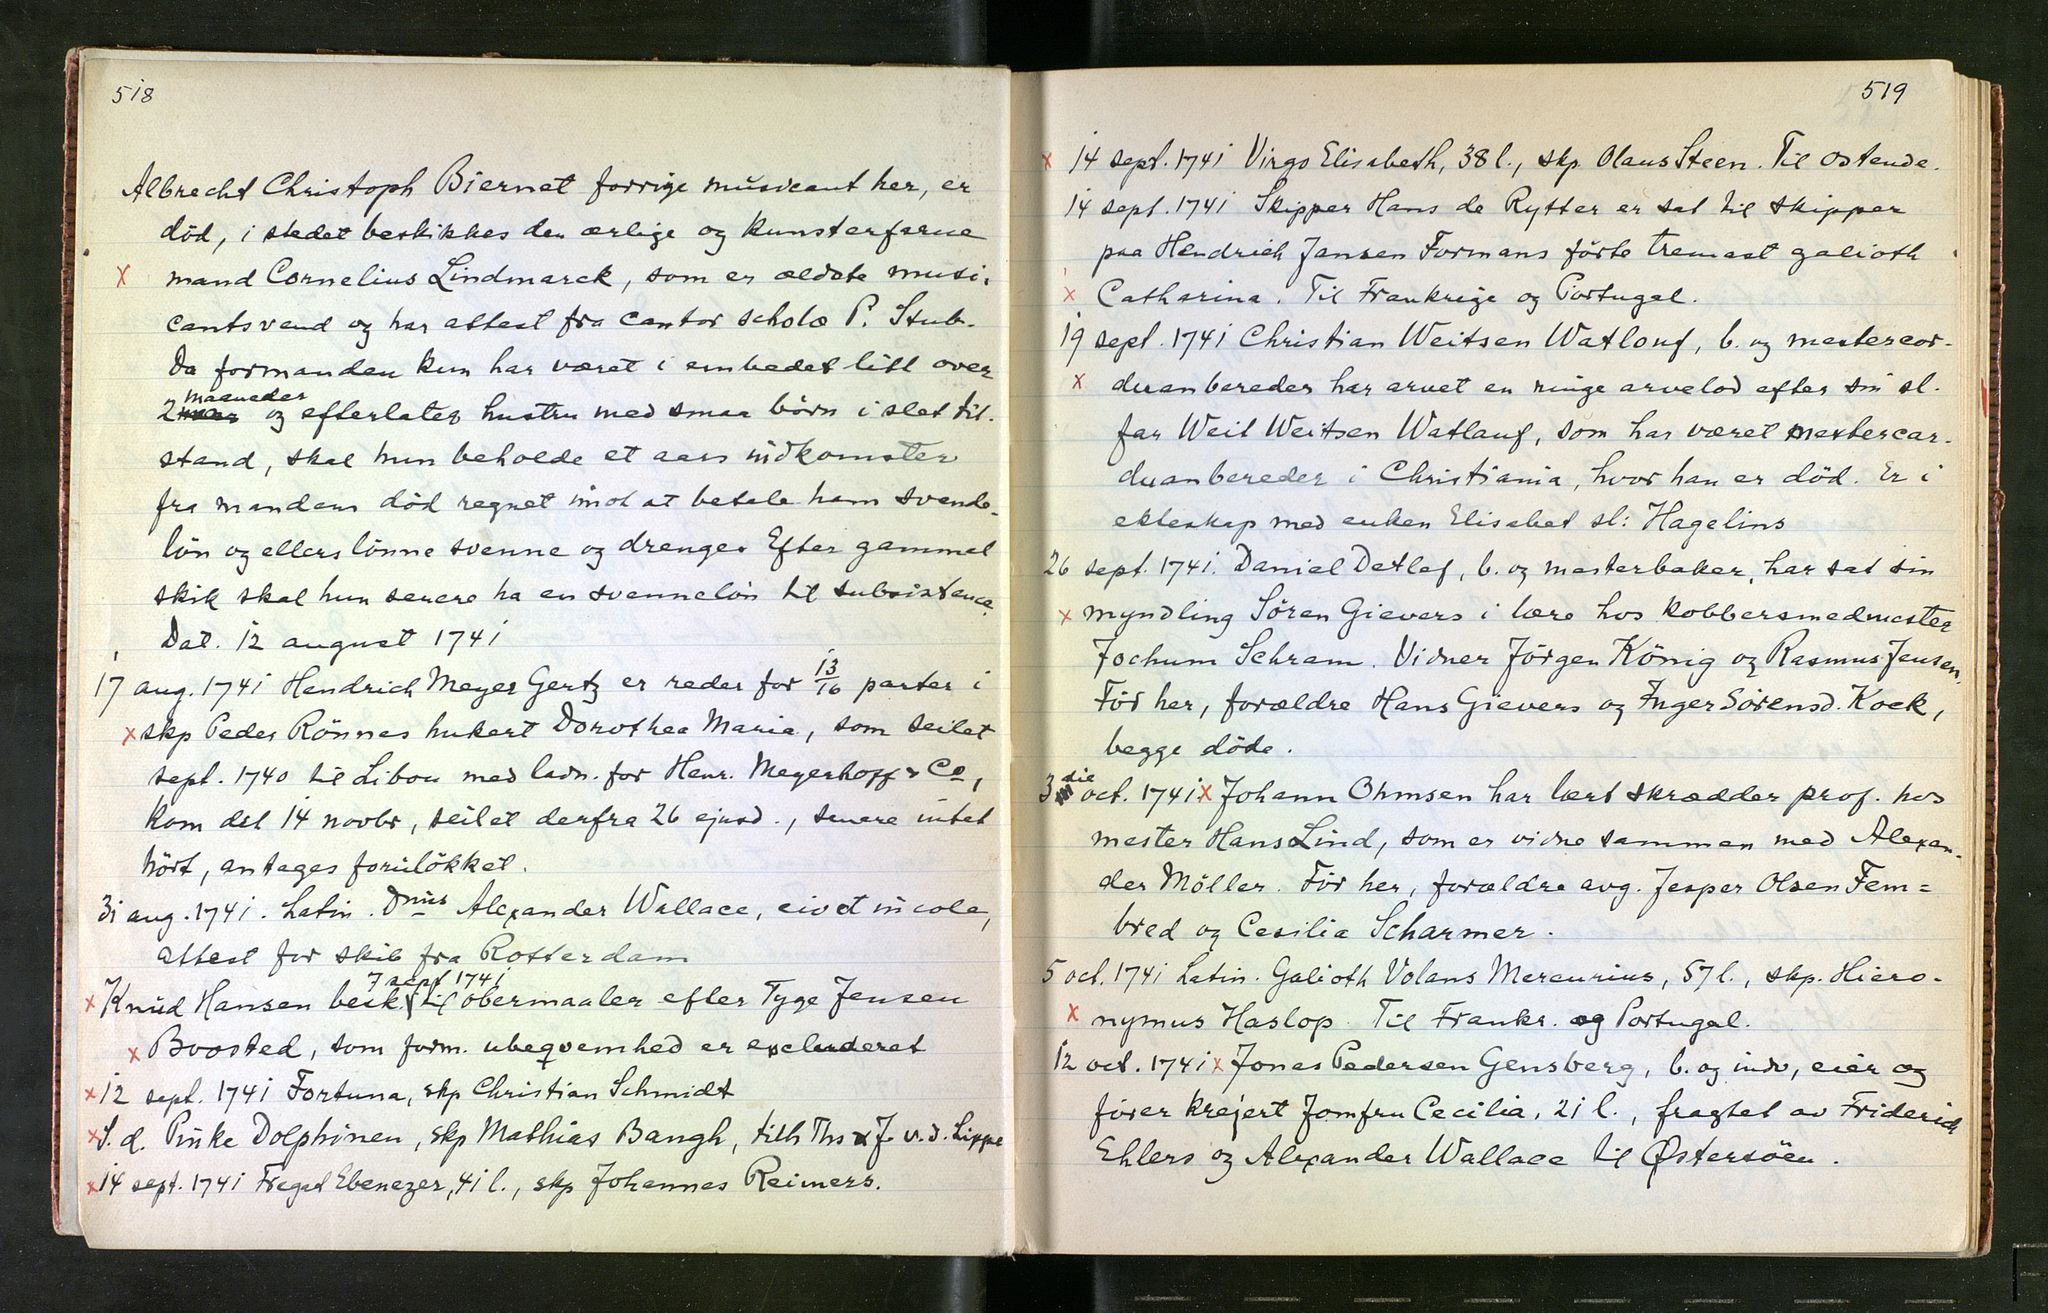 518
Albrecht Christoph Biernet forrige musicant her, er
död, i stedet beskikkes den ærlige og kunsterfarne
x mand Cornelius Lindmarck, som er ældste musi-
cantsvend og har attest fra cantor scholæ P. Stub.
Da formanden kun har været i embedet litt over
2 maaneder og efterlater hustru med smaa börn i slet til-
stand, skal hun beholde et aars indkomster
fra mandens död regnet imot at betale ham svende-
lön og ellers lönne svenne og drenge. Efter gammel
skik skal hun senere ha en svennelön til subsistence.
Dat. 12 august 1741
17 aug. 1741 Hendrich Meyer Gertz er reder for 13/16 parter i
x skp Peder Rönnes hukert Dorothea Maria, som seilet
sept. 1740 til Libou med ladn. for Henr. Meyerhoff & Co,
kom det 14 novbr, seilet derfra 26 ejusd., senere intet
hört, antages foruløkket.
31 aug. 1741. Latin. Dnus Alexander Wallace, civ et incola,
attest for skib fra Rotterdam
x Knud Hansen besk. 7 sept 1741 til obermaaler efter Tyge Jensen
x Boosted, som form. ubeqvemhed er excluderet
x 12 sept. 1741 Fortuna, skp Christian Schmidt
x S.d. Pinke Dolphinen, skp Mathias Bangh, tilh Ths & J. v.d. Lippe
x 14 sept. 1741 Fregat Ebenezer, 41 l., skp Johannes Reimers.
519
x 14 sept. 1741 Virgo Elisabeth, 38 l., skp. Olaus Steen. Til Ostende.
14 sept. 1741 Skipper Hans de Rytter er sat til skipper
paa Hendrich Jansen Formans förte tremast galioth
x Catharina. Til Frankrige og Portugal.
19 sept. 1741 Christian Weitsen Watlouf, b. og mestercor-
x duanbereder har arvet en ringe arvelod efter sin sl.
far Weit Weitsen Watlauf, som har været mestercar-
duanbereder i Christiania, hvor han er död. Er i
ekteskap med enken Elisabet sl: Hagelins
26 sept. 1741. Daniel Detlef, b. og mesterbaker, har sat sin
x myndling Sören Gievers i lære hos kobbersmedmester
Jochum Schram. Vidner Jörgen König og Rasmus Jensen,
Föd her, forældre Hans Gievers og Inger Sörensd. Kock,
begge döde.
3 die oct. 1741 x Johann Ohmsen har lært skrædder prof. hos
mester Hans Lind, som er vidne sammen med Alexan-
der Möller. Föd her, forældre avg. Jesper Olsen Fem=
bred og Cesilia Scharmer.
5 oct. 1741 Latin. Galioth Volans Mercurius, 57 l., skp. Hiero-
x nymus Haslop. Til Frankr. og Portugal.
12 oct. 1741 x Jones Pedersen Gensberg, b. og indv, eier og
förer krejert Jomfru Cecilia, 21 l., fragtet av Friderich
Ehlers og Alexander Wallace til Østersöen.